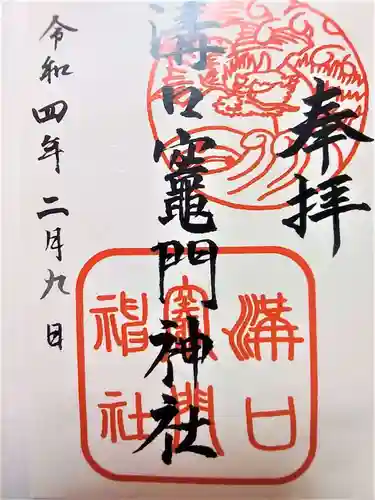 奉拝
溝口竈門神社
溝口
竈門
神社
令和四年二月九日